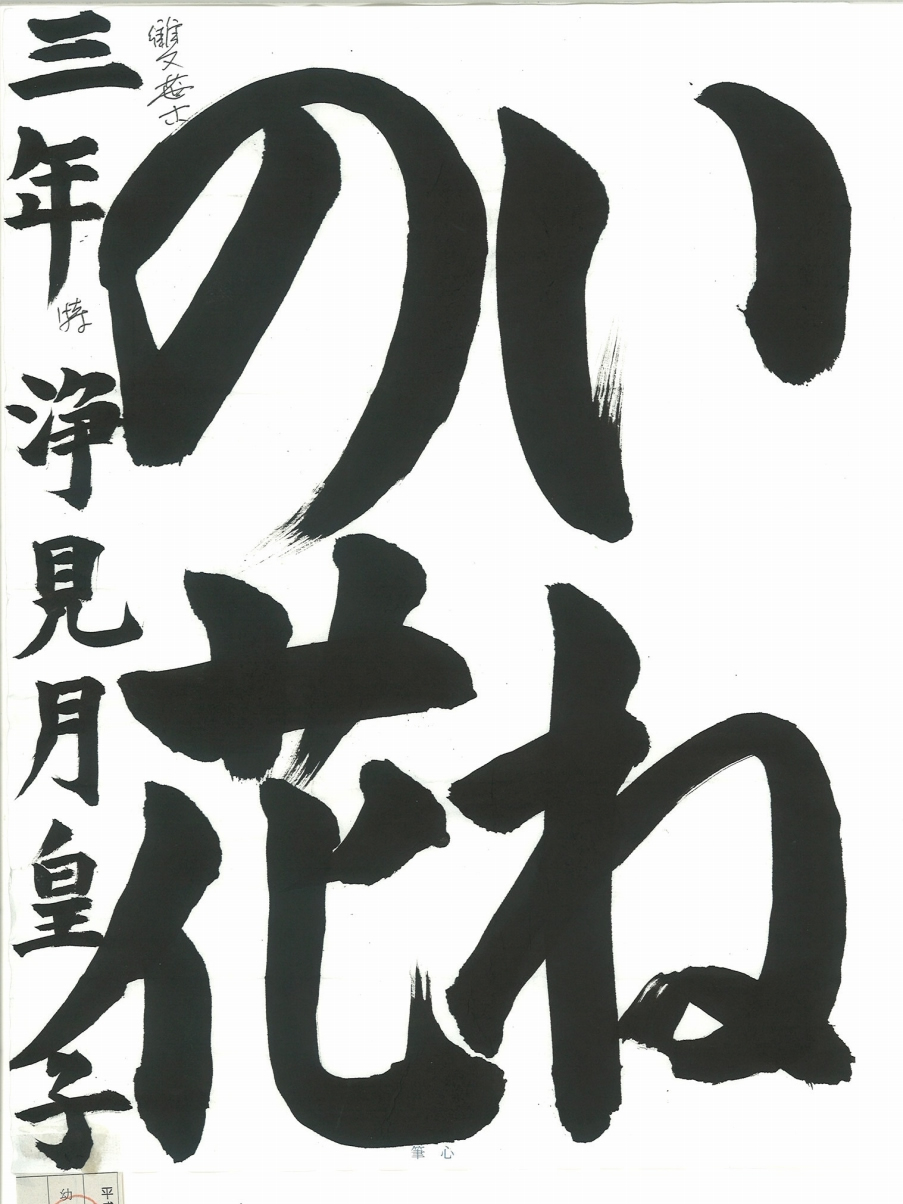 いね
の花
三年 浄見月皇子
特
筆心
平
幼